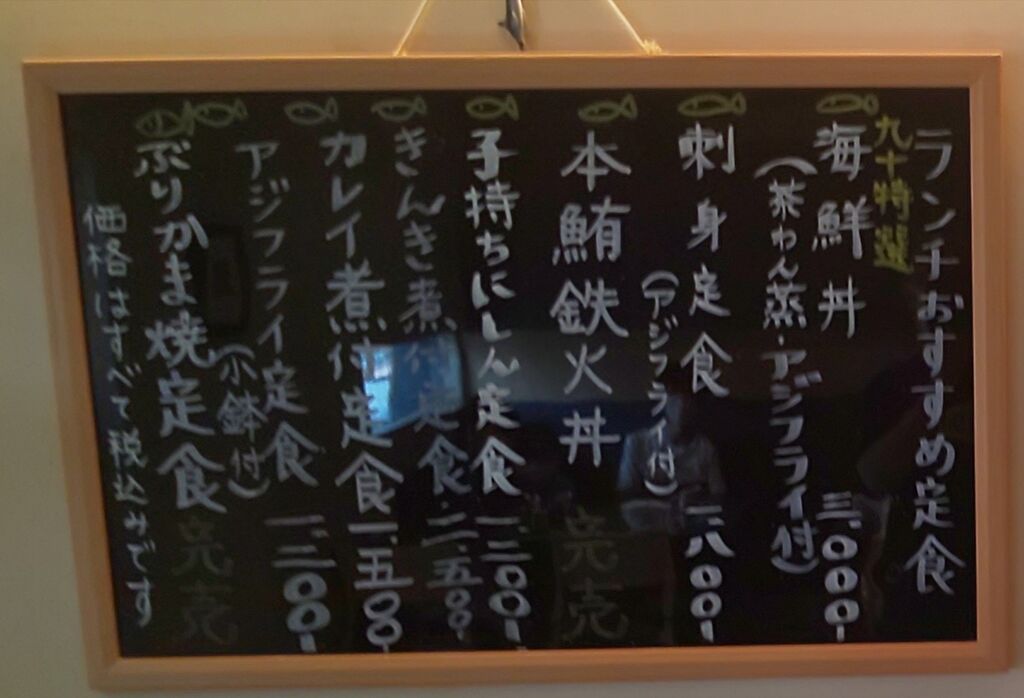 ランチおすすめ定食
九十特選
海鮮丼 三、000-
(茶わん蒸・アジフライ付)
刺身定食 一、八00-
(アジフライ付)
本鮪鉄火丼 完売
子持ちにしん定食 一、二00-
きんき煮付定食 二、五00-
カレイ煮付定食 一、五00
アジフライ定食 一、二00-
(小鉢付)
ぶりかま焼定食 完売
価格はすべて税込みです